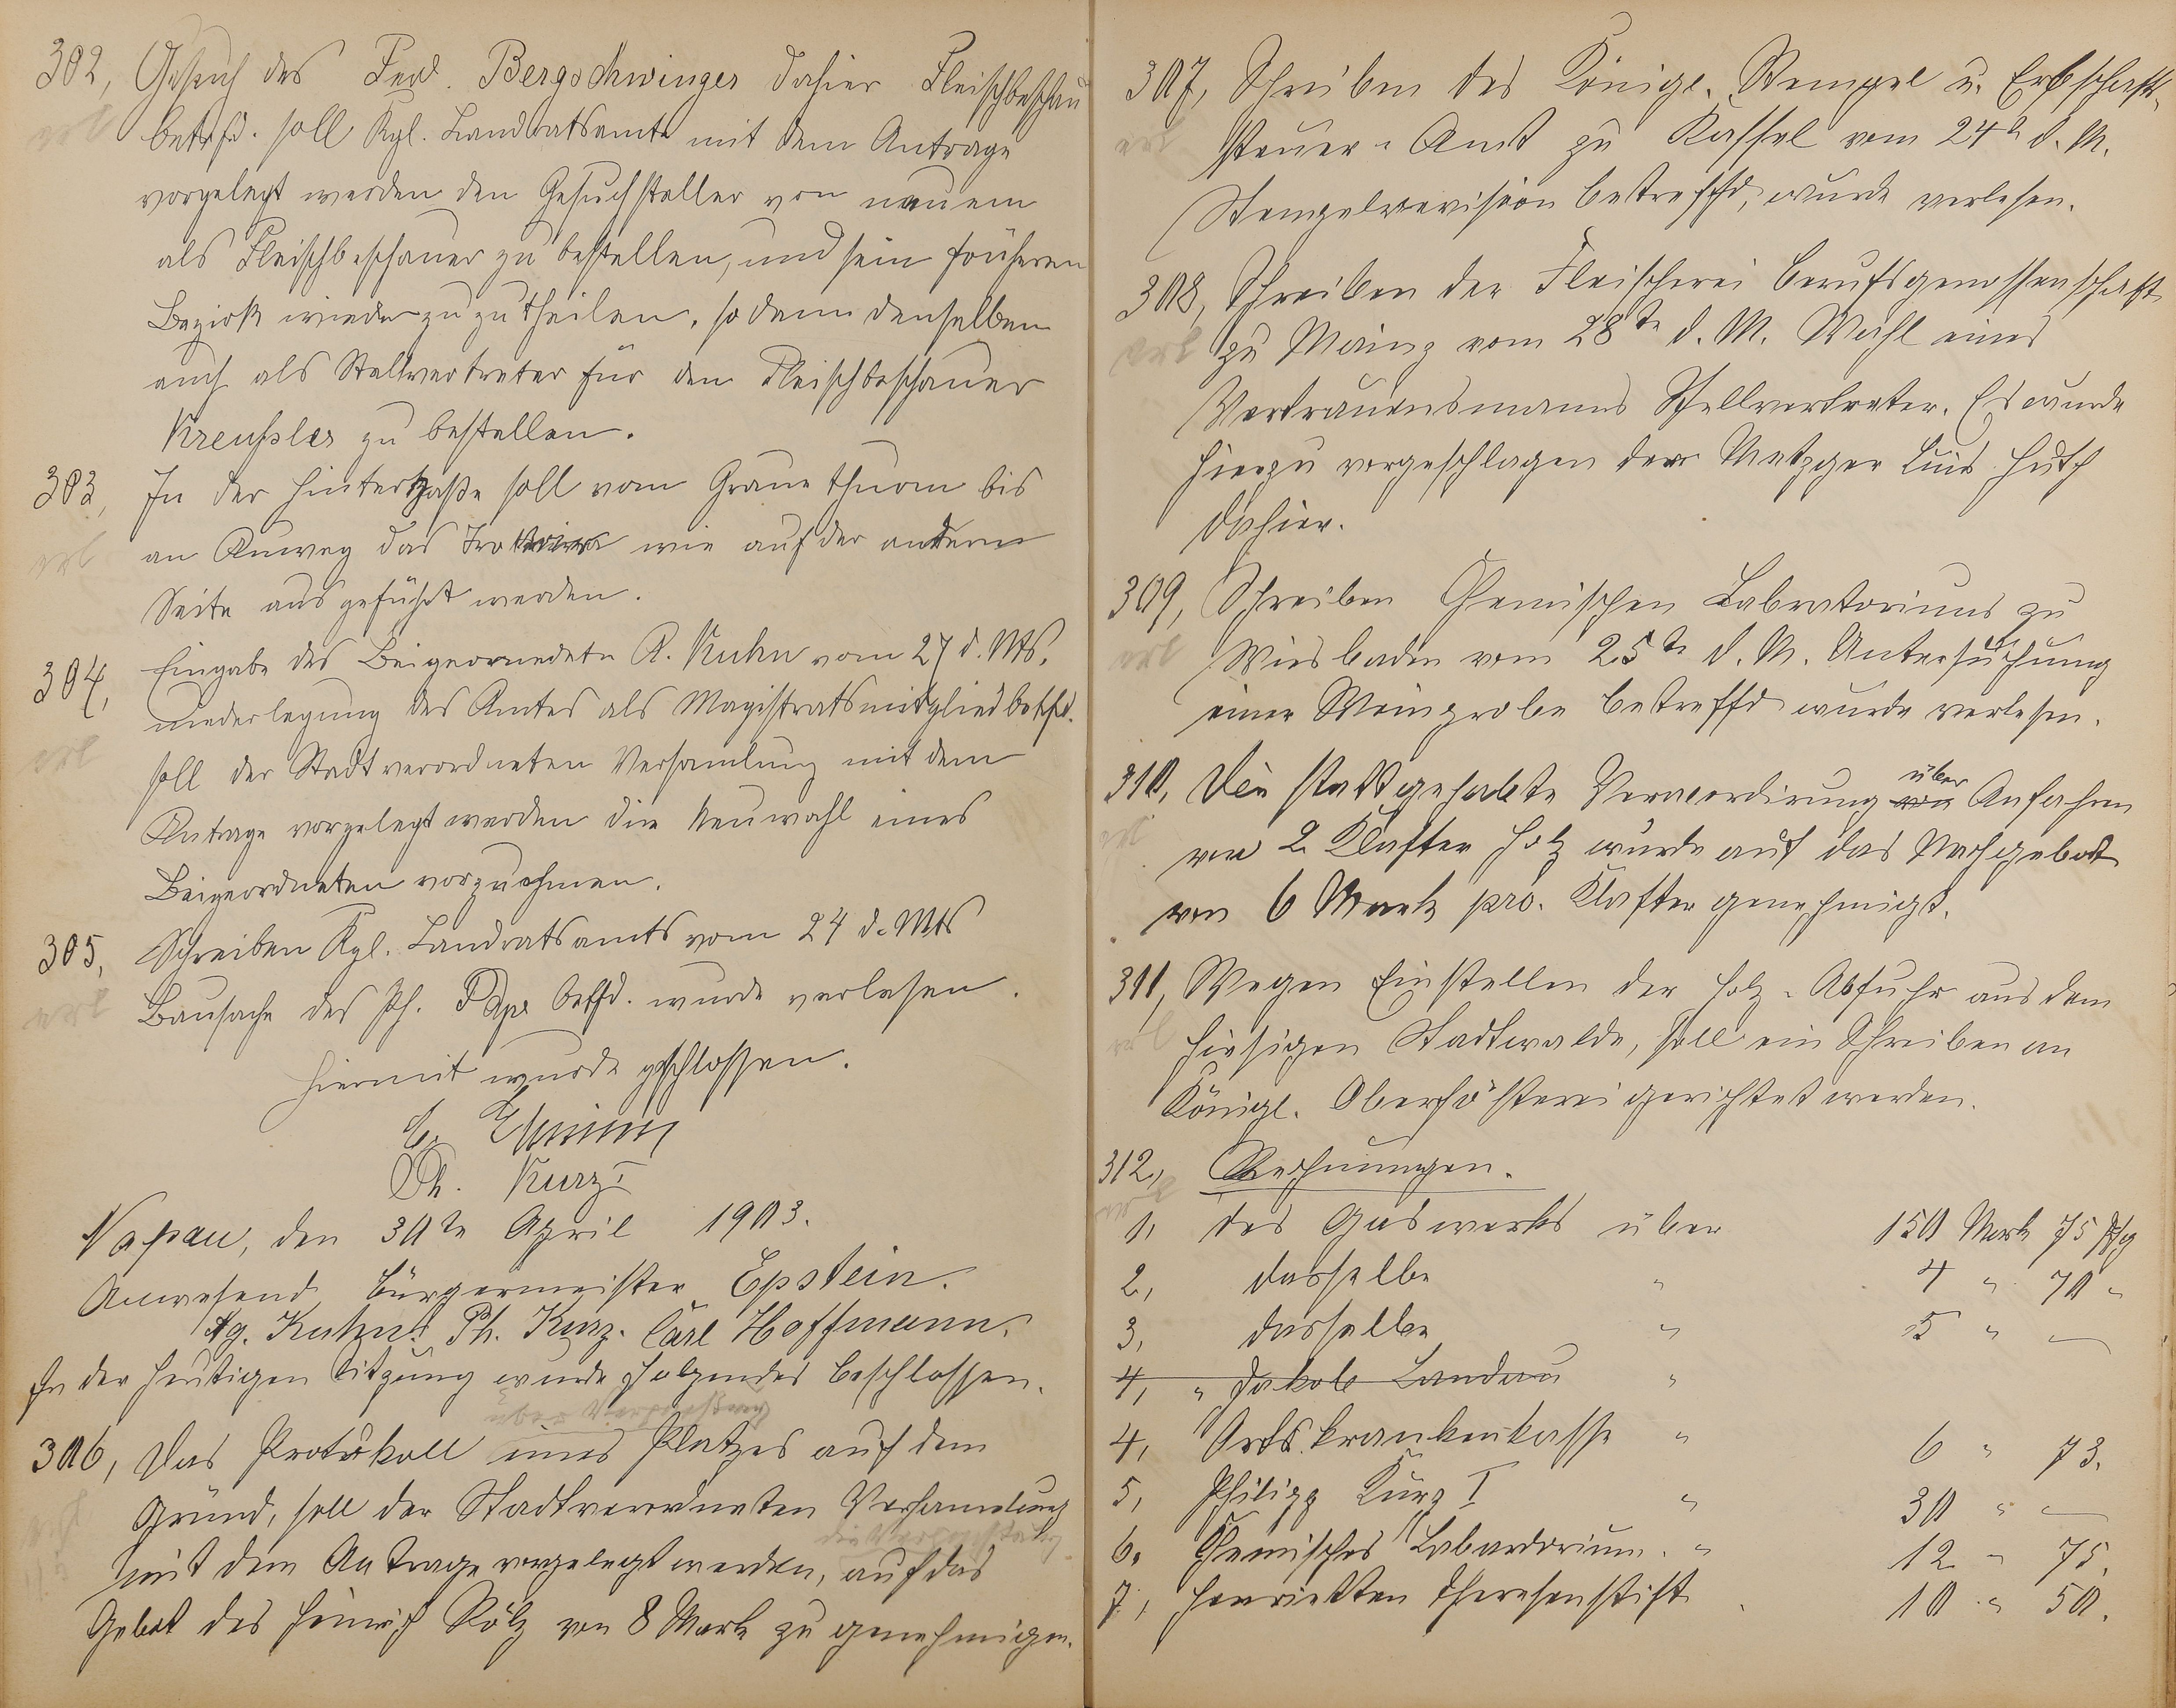 302, Gesuch des Ferd. Bergschwinger dahier Fleischbeschau
betrfd. soll Kgl. Landratsamte mit dem Antrage
vorgelegt werden den Gesuchsteller von neuem
als Fleischbeschauer zu bestellen, und sein früheren
Bezirk wieder zu zu theilen, so dann denselben
auch als Stellvertreter für den Fleischbeschauer
Kreußler zu bestellen.
303, In der Hintergaße soll vom Graue thurm bis
an Auweg das Trottoir wie auf der andern
Seite ausgeführt werden.
304, Eingabe des Beigeornedetn A. Kuhn vom 27 d. Mts.
niederlegung des Amtes als Magistratsmitglied betfd.
soll der Stadtverordneten Versamlung mit dem
Antrage vorgelegt werden die Neuwahl eines
Beigeordneten vorzunehmen.
305, Schreiben Kgl. Landratsamts vom 24 d. Mts
Bausache des Ph. betfd. wurde verlesen.
Hiermit wurde geschlossen.
Ph. Kurz I
Naßau, den 30te April 1903.
Anwesend Bürgermeister Epstein.
Ag. Kuhn. Ph. Kurz. Carl Hoffmann.
In der heutigen Sitzung wurde folgendes beschlossen.
306, Das Protokoll eines Platzes auf dem
Gründ, soll der Stadtverordneten Versamelung
mit dem Antrage vorgelegt werden, auf das
Gebot des Heinrich Kölz von 8 Mark zu genehmigen.
307, Schreiben des Königl. Stempel u. Erbschafts-
steuer-Amt zu Kassel vom 24te d. M.
Stempelrevision betreffd, wurde verlesen.
308, Schreiben der Fleischerei Berufsgenossenschaft
zu Mainz vom 28te d. M. Wahl eines
Vertrauensmanns Stellvertreter. Es wurde
hierzu vorgeschlagen der Metzger Luis Huth
dahier.
309, Schreiben Chemischen Labratoriums zu
Wiesbaden vom 25te d. M. Untersuchung
einer Weinprobe betreffd wurde verlesen.
310, Die stattgehabte Veraccordirung über Anfahren
von 2 Klafter Holz wurde auf das Nachgebot
von 6 Mark pro. Klafter genehmigt.
311, Wegen Einstellen der Holz-Abfuhr aus dem
hiesigen Stadtwalde, soll ein Schreiben an
Königl. Oberförsterei gerichtet werden.
312, Rechnungen.
1, des Gaswerks über 150 Mark 75 Pfg
2, dasselbe " 4 " 70 "
3, dasselbe " 5 " —
4, " Jakob Landau "
4, Ortskrankenkasse " 6 " 73.
5, Philipp Kurz I " 30 " —
6. Chemisches Labardorium. " 12 " 75.
7, Henrietten Theresenstift . 10 " 50.